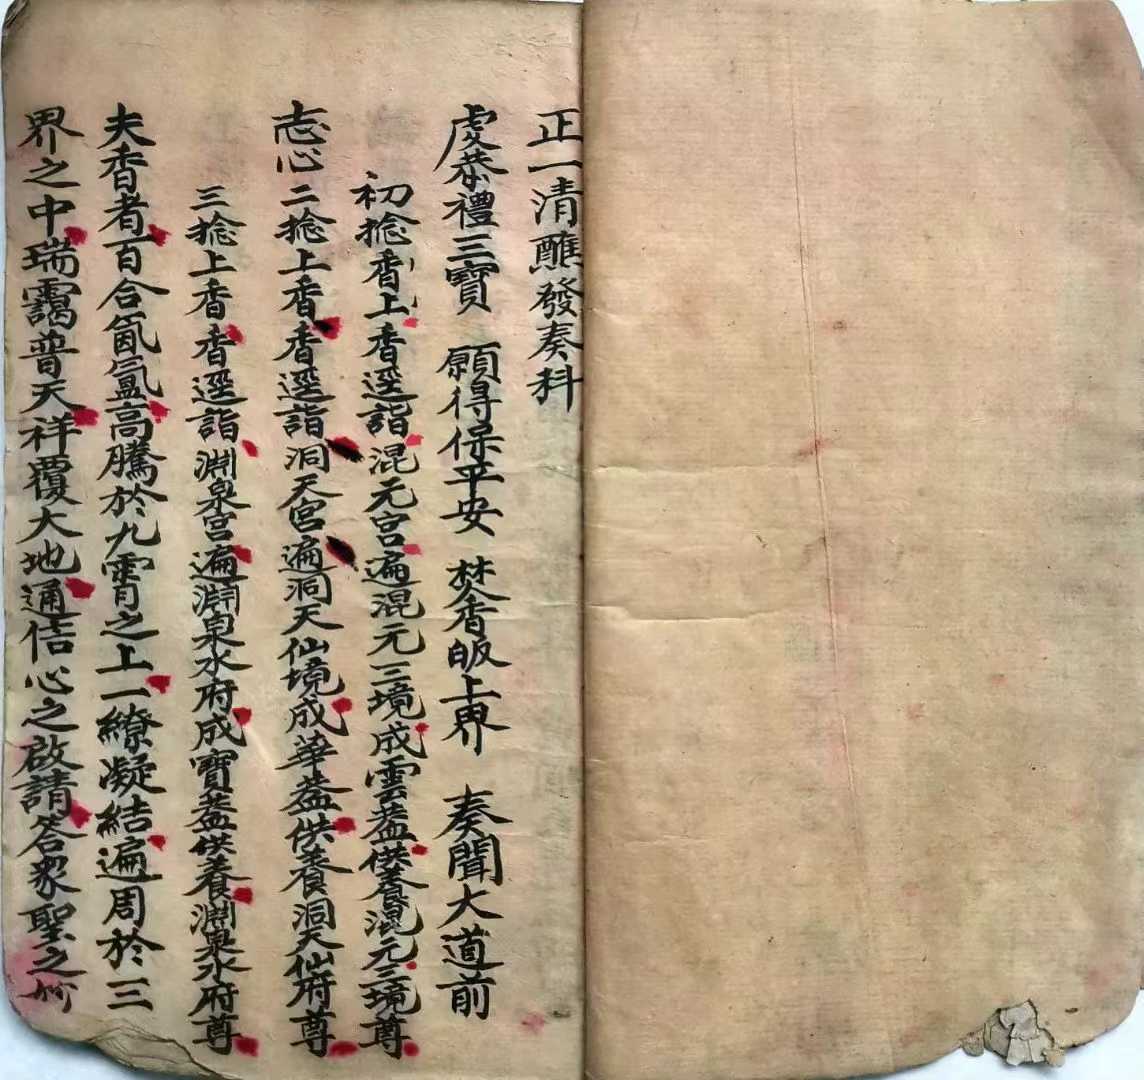 正一清醮發奏科
虔恭禮三寶　願得保平安　焚香皈上界　奏聞大道前
初捻香上香逕詣混元宮遍混元三境成雲蓋供養混元三境尊
志心二捻上香香逕詣洞天宮遍洞天仙境成華蓋供養洞天仙府尊
三捻上香香逕詣淵泉宮遍淵泉水府成寶蓋供養淵泉水府尊
夫香者百合氤氳高騰於九霄之上一繚凝結遍周於三
界之中瑞靄普天祥覆大地通信心之啟請答衆聖之